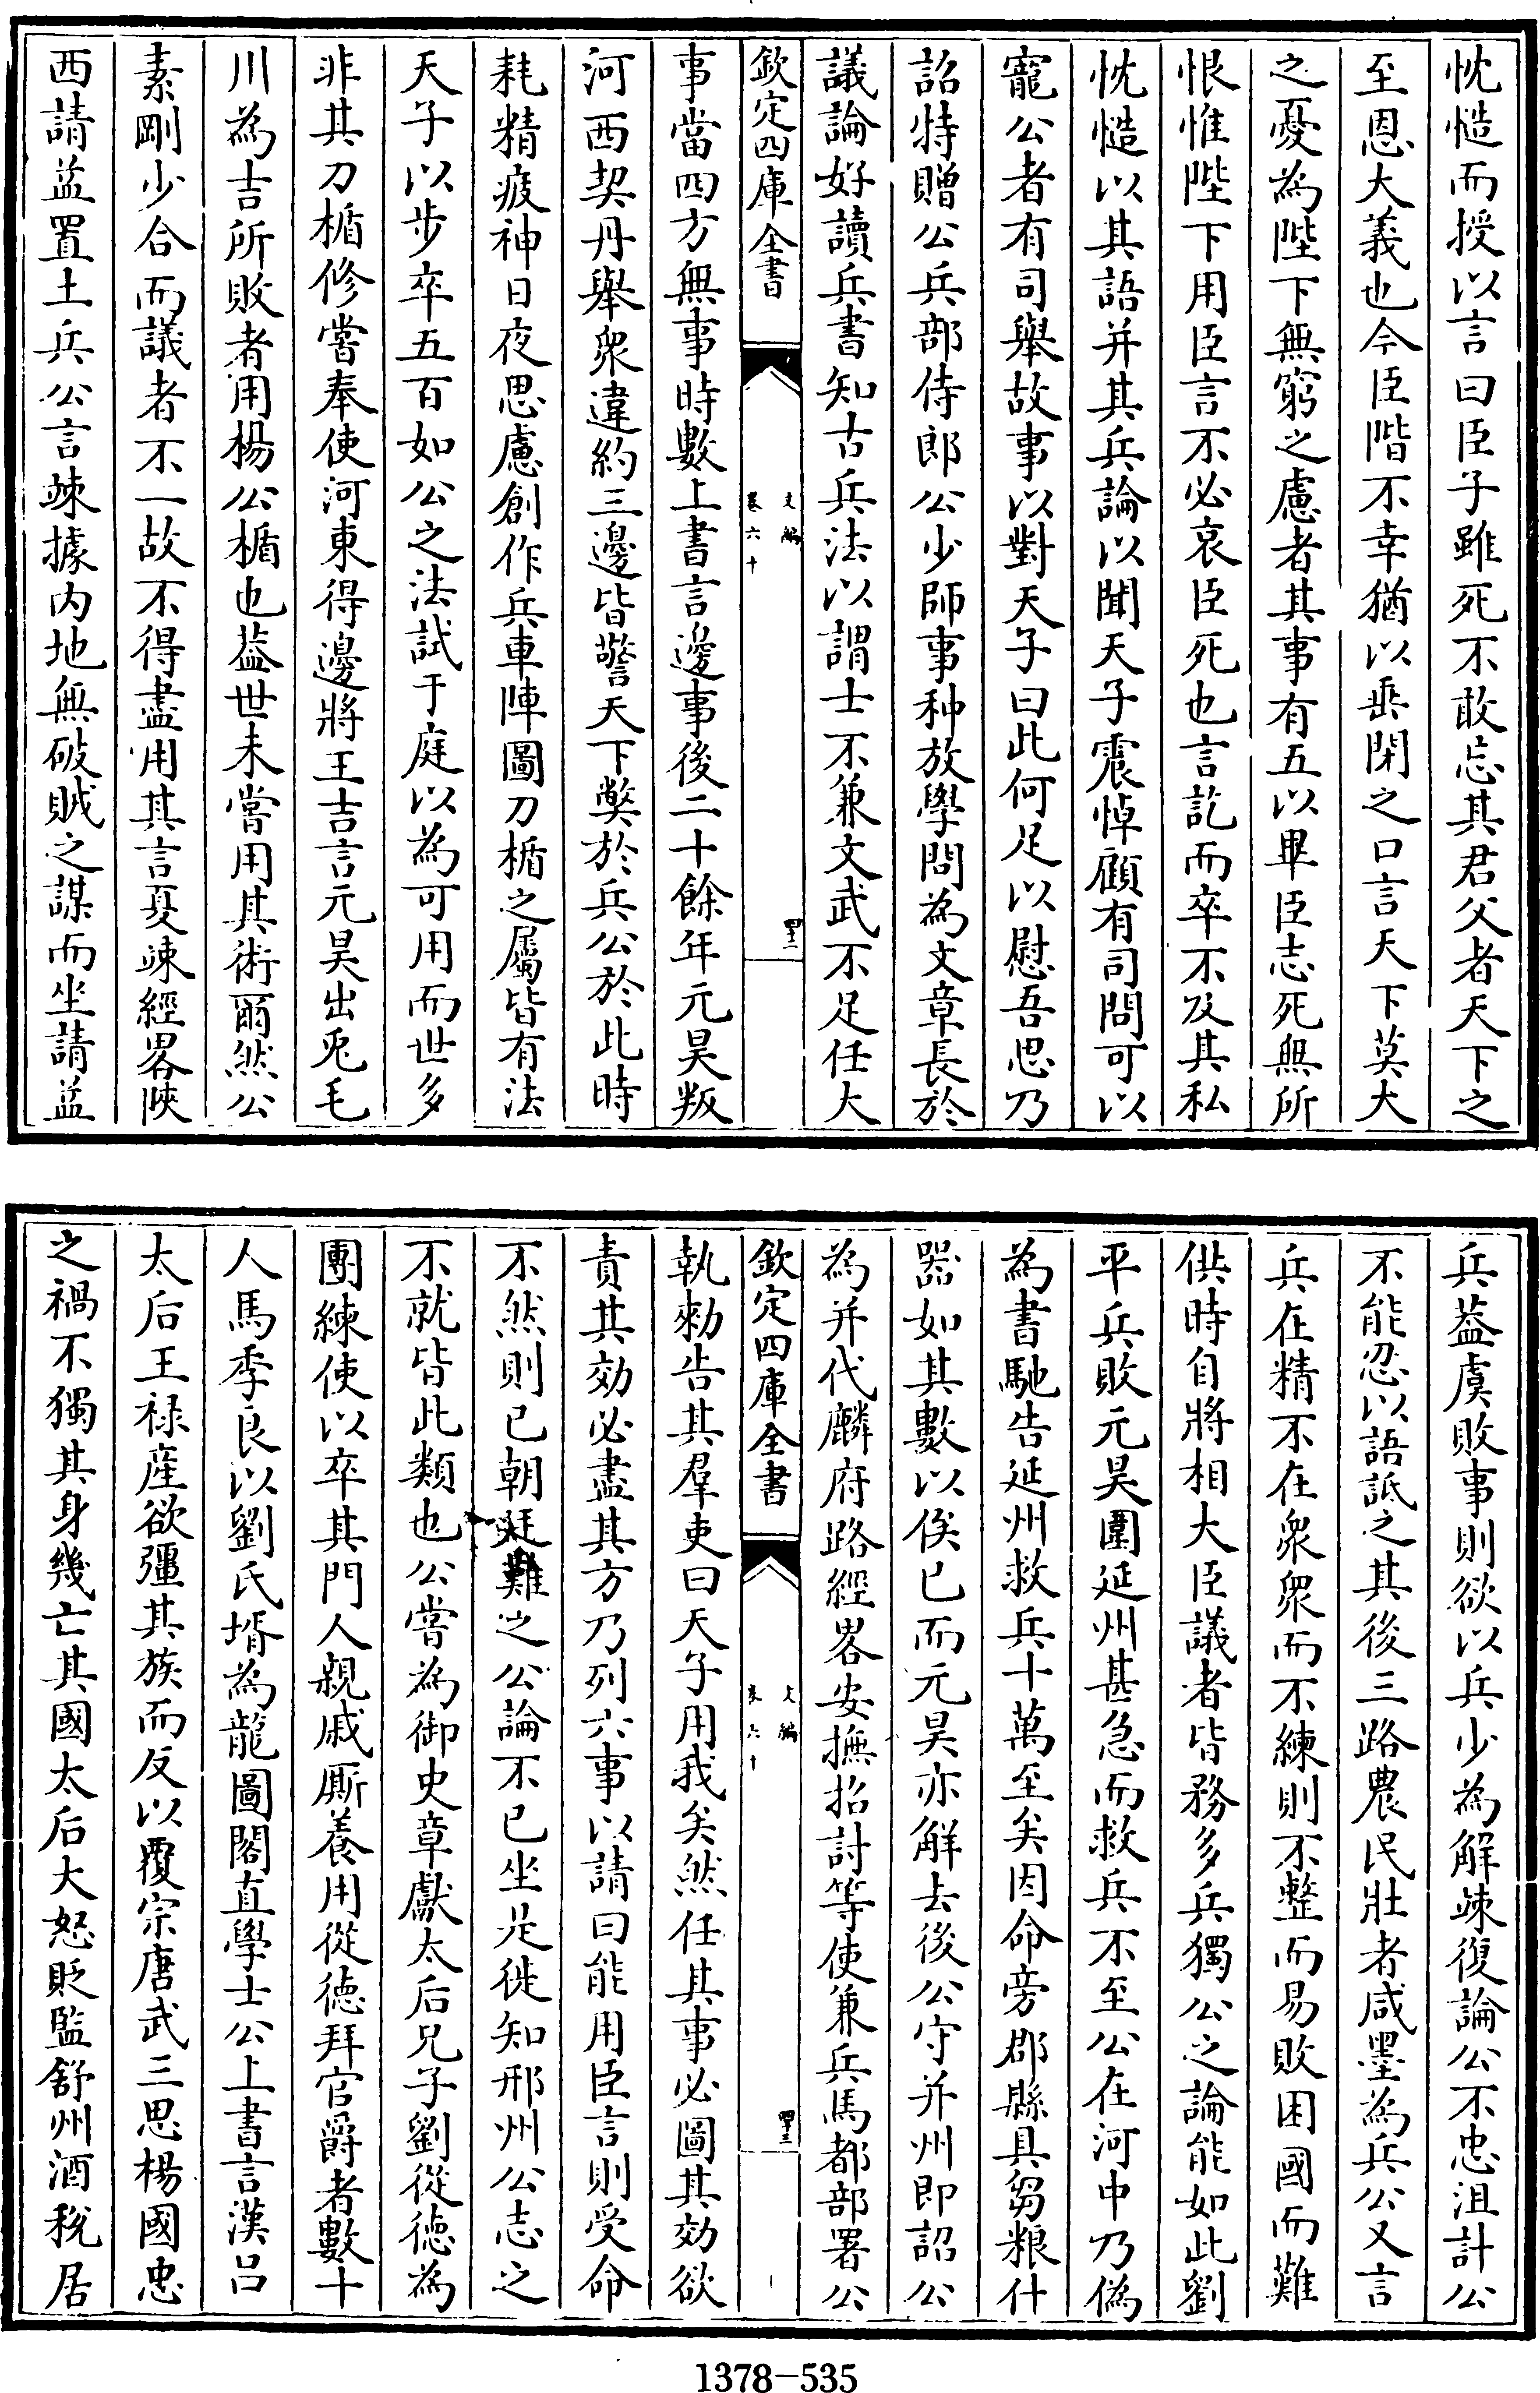 忱慥而授以言曰臣子雖死不敢忘其君父者天下之
至恩大義也今臣階不幸猶以垂閉之口言天下莫大
之憂為陛下無窮之慮者其事有五以畢臣志死無所
恨惟陛下用臣言不必哀臣死也言訖而卒不及其私
忱慥以其語并其兵論以聞天子震悼顧有司問可以
寵公者有司舉故事以對天子曰此何足以慰吾思乃
詔特贈公兵部侍郎公少師事种放學問為文章長於
議論好讀兵書知古兵法以謂士不兼文武不足任大
欽定四庫全書
文編
卷六十
四十二
事當四方無事時數上書言邊事後二十餘年元昊叛
河西契丹舉眾違約三邊皆警天下獘於兵公於此時
耗精疲神日夜思慮創作兵車陣圖刀楯之屬皆有法
天子以步卒五百如公之法試于庭以為可用而世多
非其刀楯修嘗奉使河東得邊將王吉言元昊出兎毛
川為吉所敗者用楊公楯也葢世未嘗用其術爾然公
素剛少合而議者不一故不得盡用其言夏竦經畧陜
西請益置土兵公言竦據内地無破賊之謀而坐請益
兵葢虞敗事則欲以兵少為解竦復論公不忠沮計公
不能忍以語詆之其後三路農民壯者咸墨為兵公又言
兵在精不在衆衆而不練則不整而易敗困國而難
供時自將相大臣議者皆務多兵獨公之論能如此劉
平兵敗元昊圍延州甚急而救兵不至公在河中乃偽
為書馳告延州救兵十萬至矣因命旁郡縣具芻粮什
器如其數以俟已而元昊亦解去後公守并州即詔公
為并代麟府路經畧安撫招討等使兼兵馬都部署公
欽定四庫全書
文編
卷六十
四十三
執勑告其羣吏曰天子用我矣然任其事必圖其効欲
責其効必盡其方乃列六事以請曰能用臣言則受命
不然則已朝廷難之公論不已坐是徙知邢州公志之
不就皆此類也公嘗為御史章獻太后兄子劉從徳為
團練使以卒其門人親戚厮養用從徳拜官爵者數十
人馬季良以劉氏壻為龍圖閣直學士公上書言漢呂
太后王禄産欲彊其族而反以覆宗唐武三思楊國忠
之禍不獨其身幾亡其國太后大怒貶監舒州酒稅居
1378-535